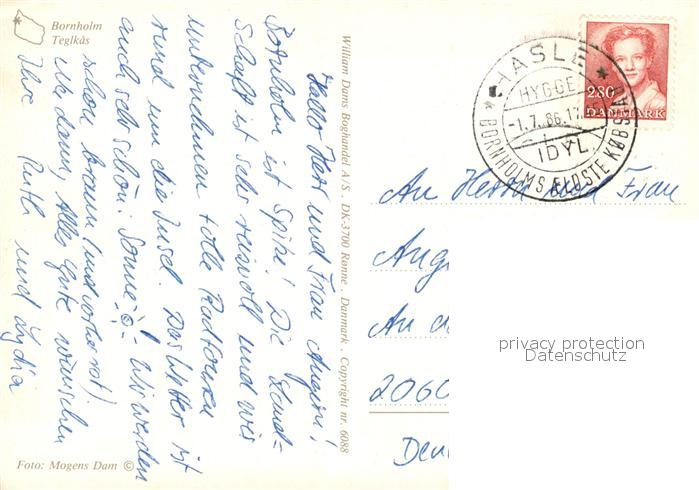 Bornholm
Teglkås
Hallo Herr und Frau
Bornholm ist Spitze! Die Land-
schaft ist sehr reizvoll und wir
unternehmen tolle Radtouren
rund um die Insel. Das Wetter ist
auch sehr schön: Sonne! Wir werden
schön braun (und vorher rot)
Na dann, Alles Gute wünschen
Ihre Ruth und Lydia
Foto: Mogens Dam ©
William Dams Boghandel A/S . DK-3700 Rønne . Danmark . Copyright nr. 6088
HASLE
HYGGE
-1.7.86.17
IDYL
BORNHOLMS ÆLDSTE KØBSTAD
2.80
DANMARK
An Herrn und Frau
Ang
An d
2060
privacy protection
Datenschutz